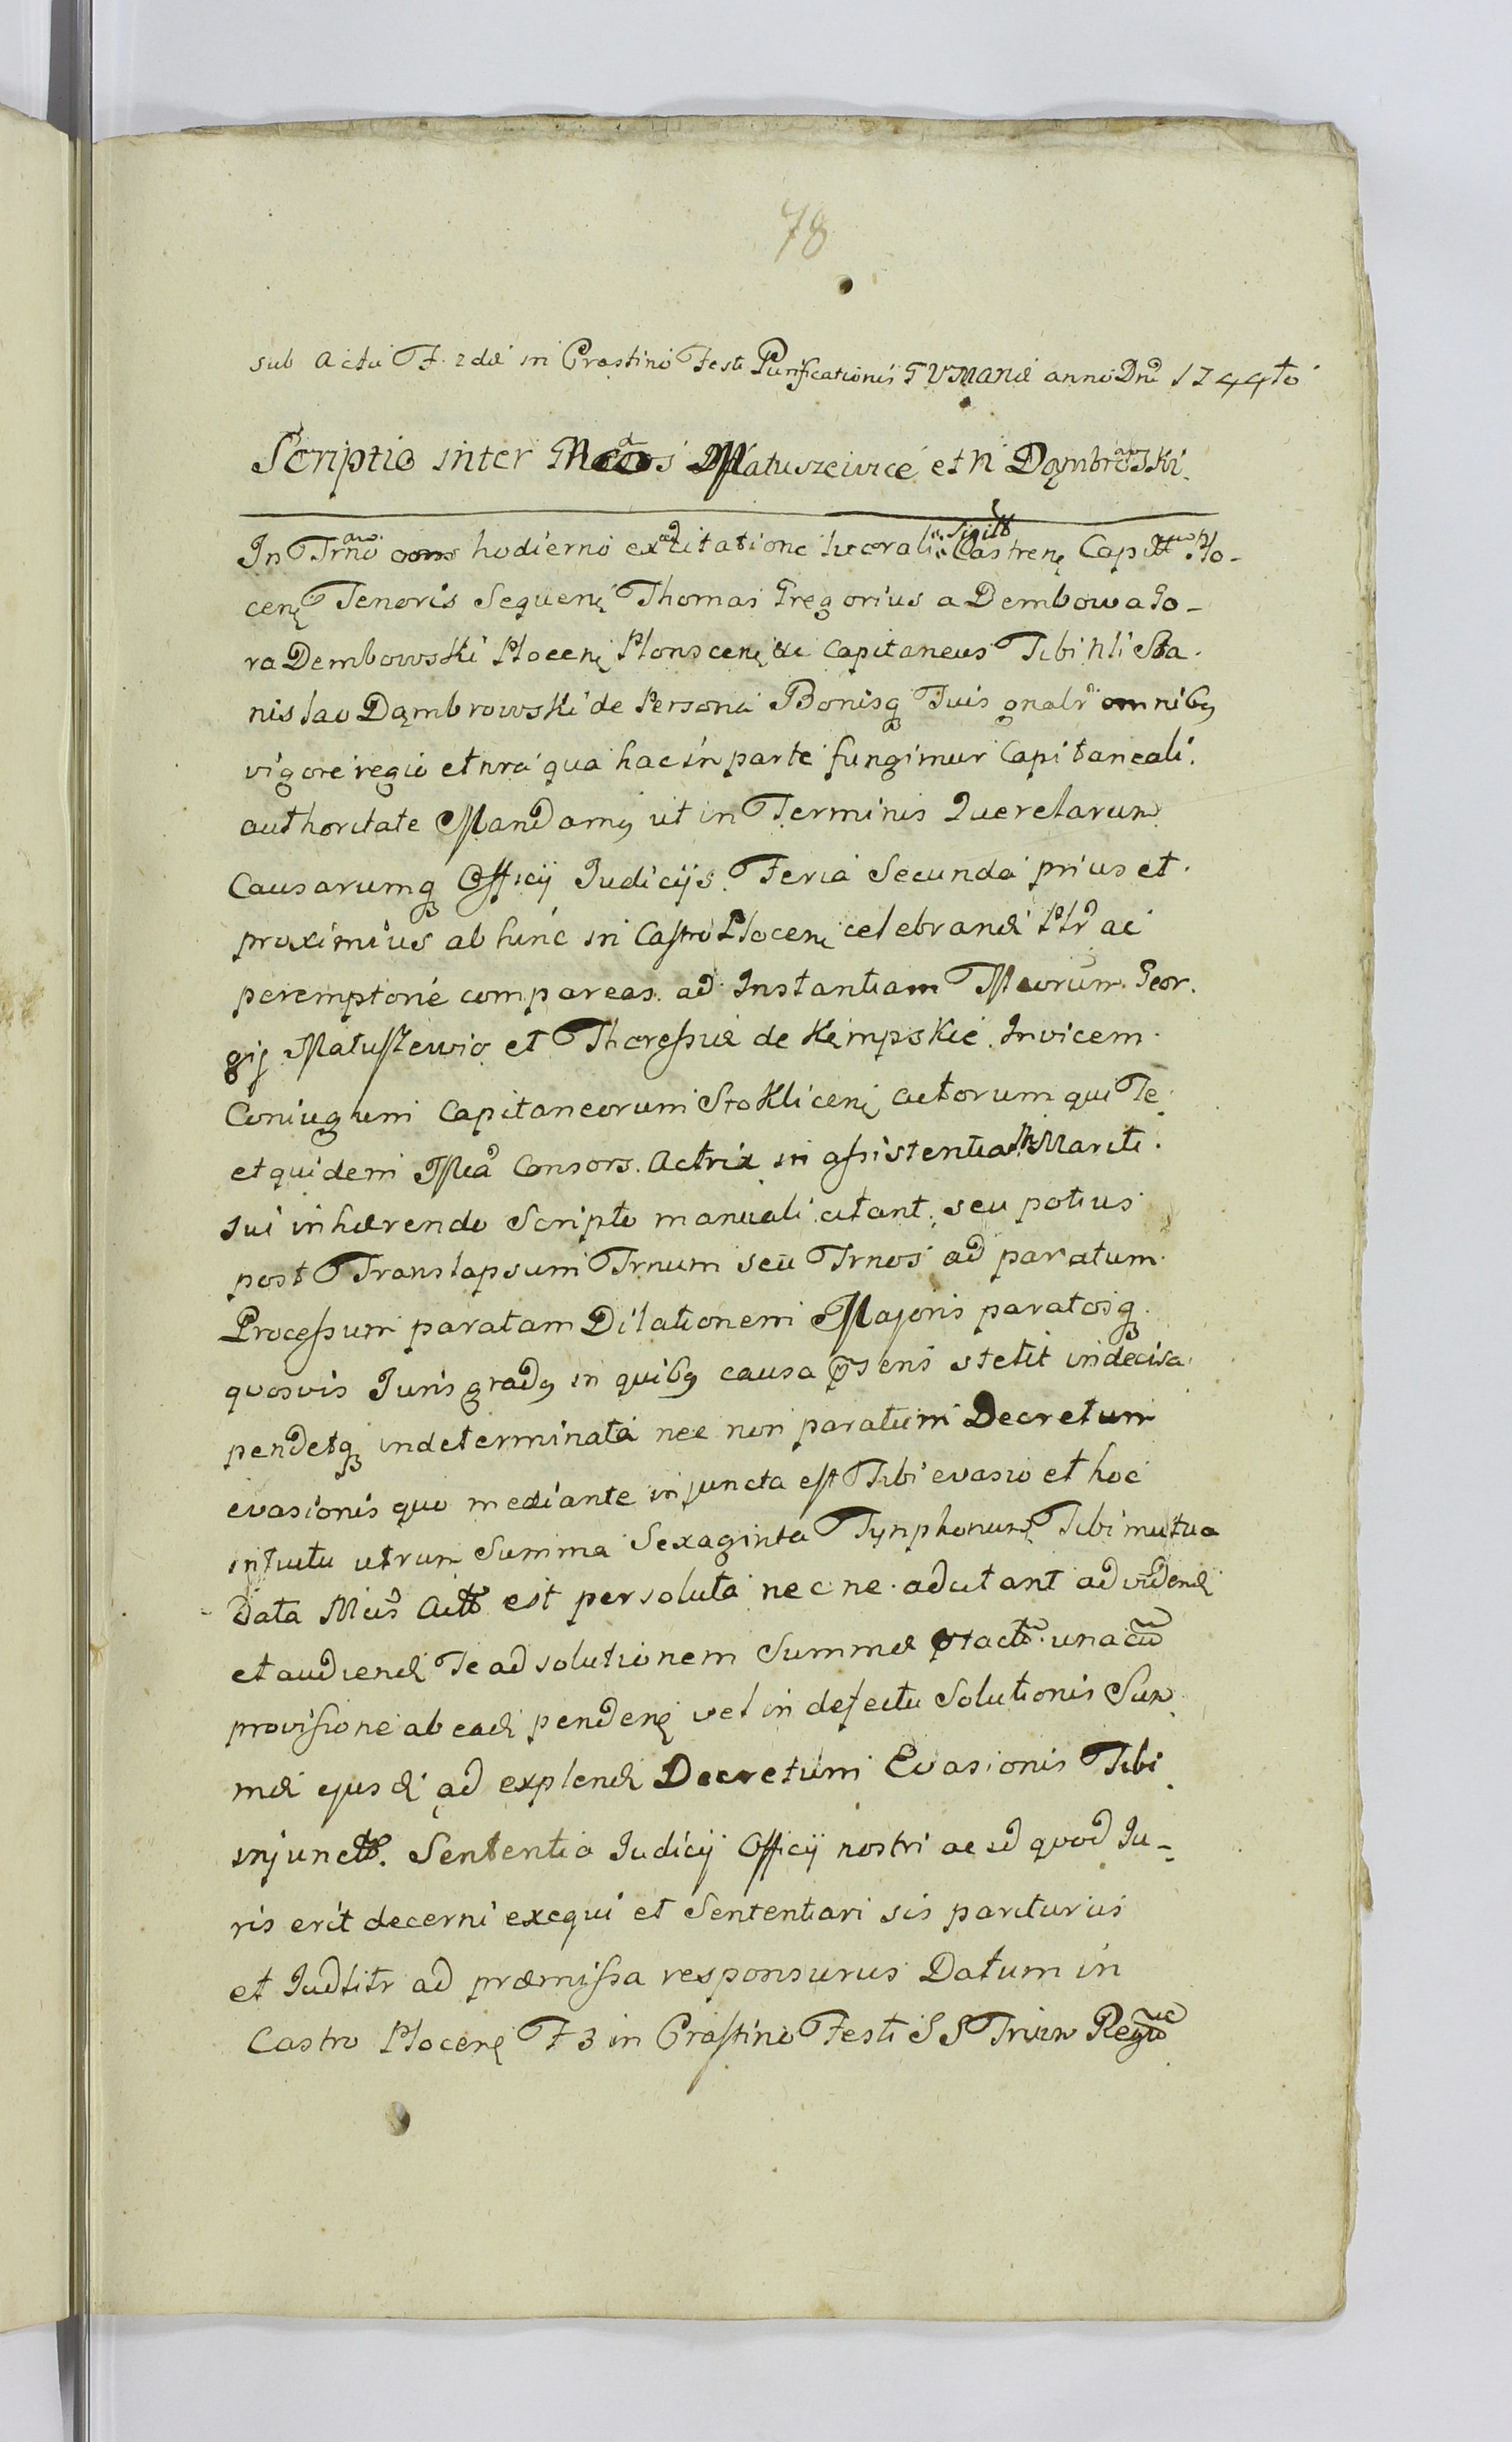 78
sub Actu F. 2dæ in Crastino Festi Purificationis BVMariæ anno Dni 1744to
Scriptio inter Mcos Matuszewice et N Dąmbrowski.
In Trno hodierno ex citatione literali Sigill Castrenę Capitt Plo-
cenę Tenoris Sequenę Thomas Gregorius a Dembowa Go-
ra Dembowski Plocenę Plonscenę &c Capitaneus Tibi Nli Sta-
nislao Dąmbrowski de Persona Bonisq Tuis gnalr omnibg
vigore regio et nra qua hac in parte fungimur Capitaneali
authoritate Mandamg ut in Terminis Querelarum
Causarumq Officij Judicijs Feria Secunda prius et
proximius ab hinc in Castro Plocenę celebrandi Plr ac
peremptorie compareas ad Instantiam Mcorum Geor-
gij Matuszewic et Theressiæ de Kempskie Invicem
Coniugum Capitaneorum Stoklicenę actorum qui Te
et quidem Mca Consors Actrix in assistentia M Mariti
sui inhærendo Scripto manuali citant seu potius
post Translapsum Trnum seu Trnos ad paratum
Processum paratam Dilationem Majoris paratosq
quosvis Juris gradg in quibg causa psens stetit indecisa
pendetq indeterminata nec non paratum Decretum
evasionis quo mediante injuncta est Tibi evasio et hoc
intuitu utrum Summa Sexaginta Tynphonum Tibi mutuo
Data Mcis Actt est persoluta nec ne adcitant ad videndi
et audiendi Te ad solutionem Summæ pttactæ una cum
provisione ab eadi pendenę vel in defectu Solutionis Sum
mæ ejusdi ad explendi Decretum Evasionis Tibi
injunctt. Sententia Judicij Officij nostri ac id quod Ju-
ris erit decerni exequi et Sententiari sis pariturus
et Judlitr ad præmissa responsurus Datum in
Castro Plocenę F 3 in Crastino Festi SS Trium Regum